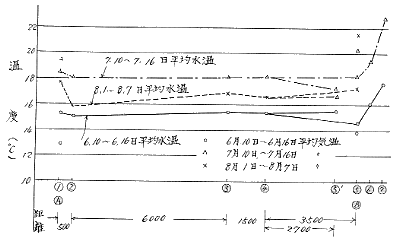 温度(℃)
22
20
18
16
14
12
10
7.10~7.16日平均水温
8.1~8.7日平均水温
6.10~6.16日平均水温
6月10日~6月16日平均気温
7月10日~7月16日 〃
8月1日~8月7日 〃
① ② ③ ④ ⑤' ⑤ ⑥ ⑦
Ⓐ Ⓐ
距離
500 6000 1500 3500
2700